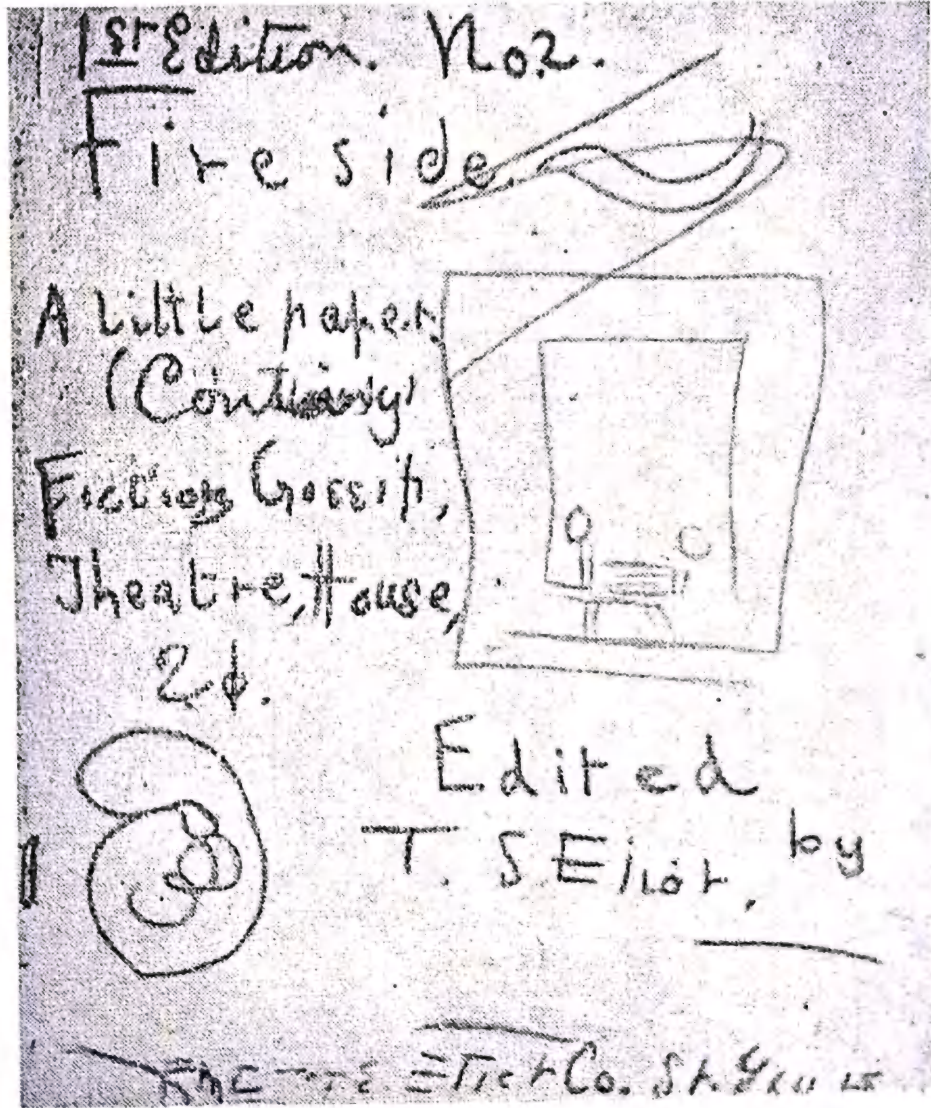 1st Edition. No2.
Fireside.
A Little paper
(Containing)
Fiction, Gossip,
Theatre, House,
2¢.
Edited
by
T. S Eliot.
Eliot Co. St.